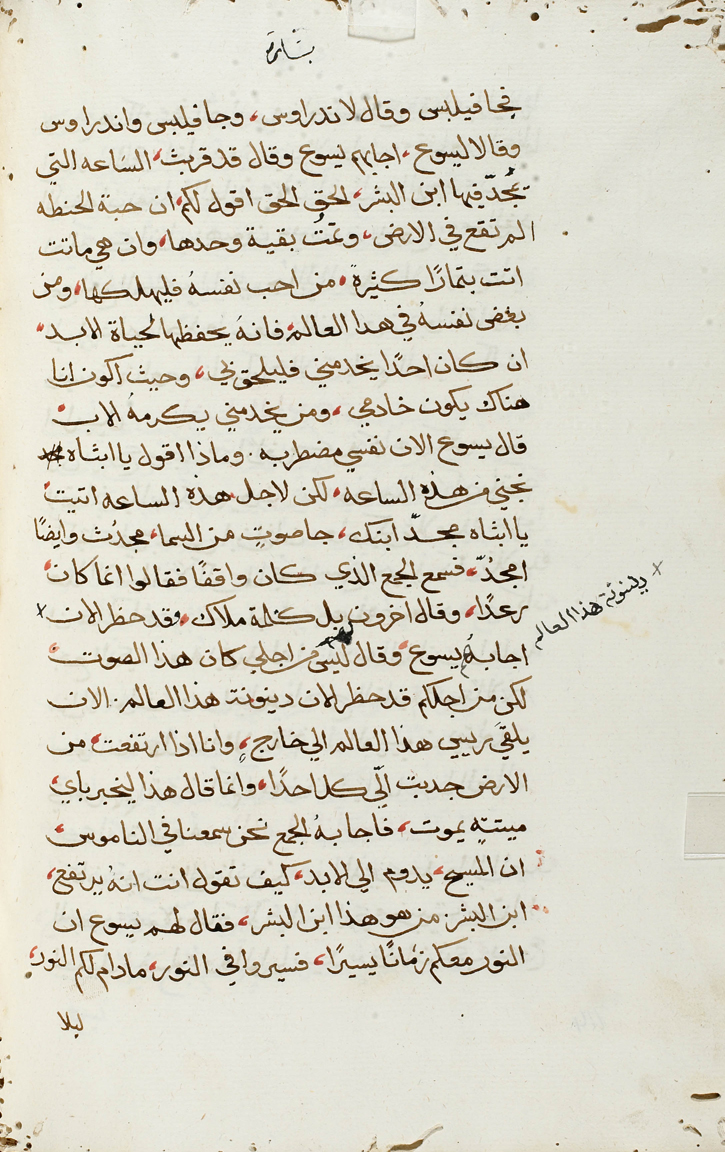 بشارة
فجا فيلبس وقال لاندراوس، وجا فيلبس واندراوس
وقالا ليسوع، اجابهم يسوع وقال قد قربت الساعه التي
يمجدّ فيها ابن البشر، الحق الحق اقول لكم، ان حبة الحنطه
الم تقع في الارض، وتمتُ بقية وحدها، وان هي ماتت
اتت بتمارًا كثيرة، من احب نفسهُ فليهلكها، ومن
بغض نفسهُ في هدا العالم، فانهُ يحفظها لحياة الابد
ان كان احدًا يخدمني فليلحق بي، وحيث اكون انا
هناك يكون خادمي، ومن يخدمني يكرمهُ الاب
قال يسوع الان نفسي مضطربه. وماذا اقول يا ابتاه
نجني من هذه الساعه، لكن لاجل هذه الساعه اتيت
يا ابتاه مجدّ ابنك، جا صوتٍ من السما، مجدُت وايضًا
امجدُّ، فسمع الجمع الذي كان واقفًا فقالوا انما كان
رعدًا، وقال اخرون بل كلمة ملاك، وقد حظر الان x
اجابهُم يسوع وقال ليس من اجلي كان هذا الصوت
لكن من اجلكم قد حظر الان دينونة هذا العالم. الان
يلقىَ رييس هذا العالم الي خارجٍ، وانا اذا ارتفعت من
الارض جدبت اليّ كل احدًا، وانما قال هذا ليخبر باي
ميتتهٍ يموت، فاجابهُ الجمع نحن سمعنا في الناموس
ان المسيح، يدوم الي الابد، كيف تقول انت انهُ يرتفع،
ابن البشر من هو هذا ابن البشر، فقال لهم يسوع ان
النور معكم زمانًا يسيرًا، فسيروا في النور، مادام لكم النور،
ليلا
x دينونة هذا العالم